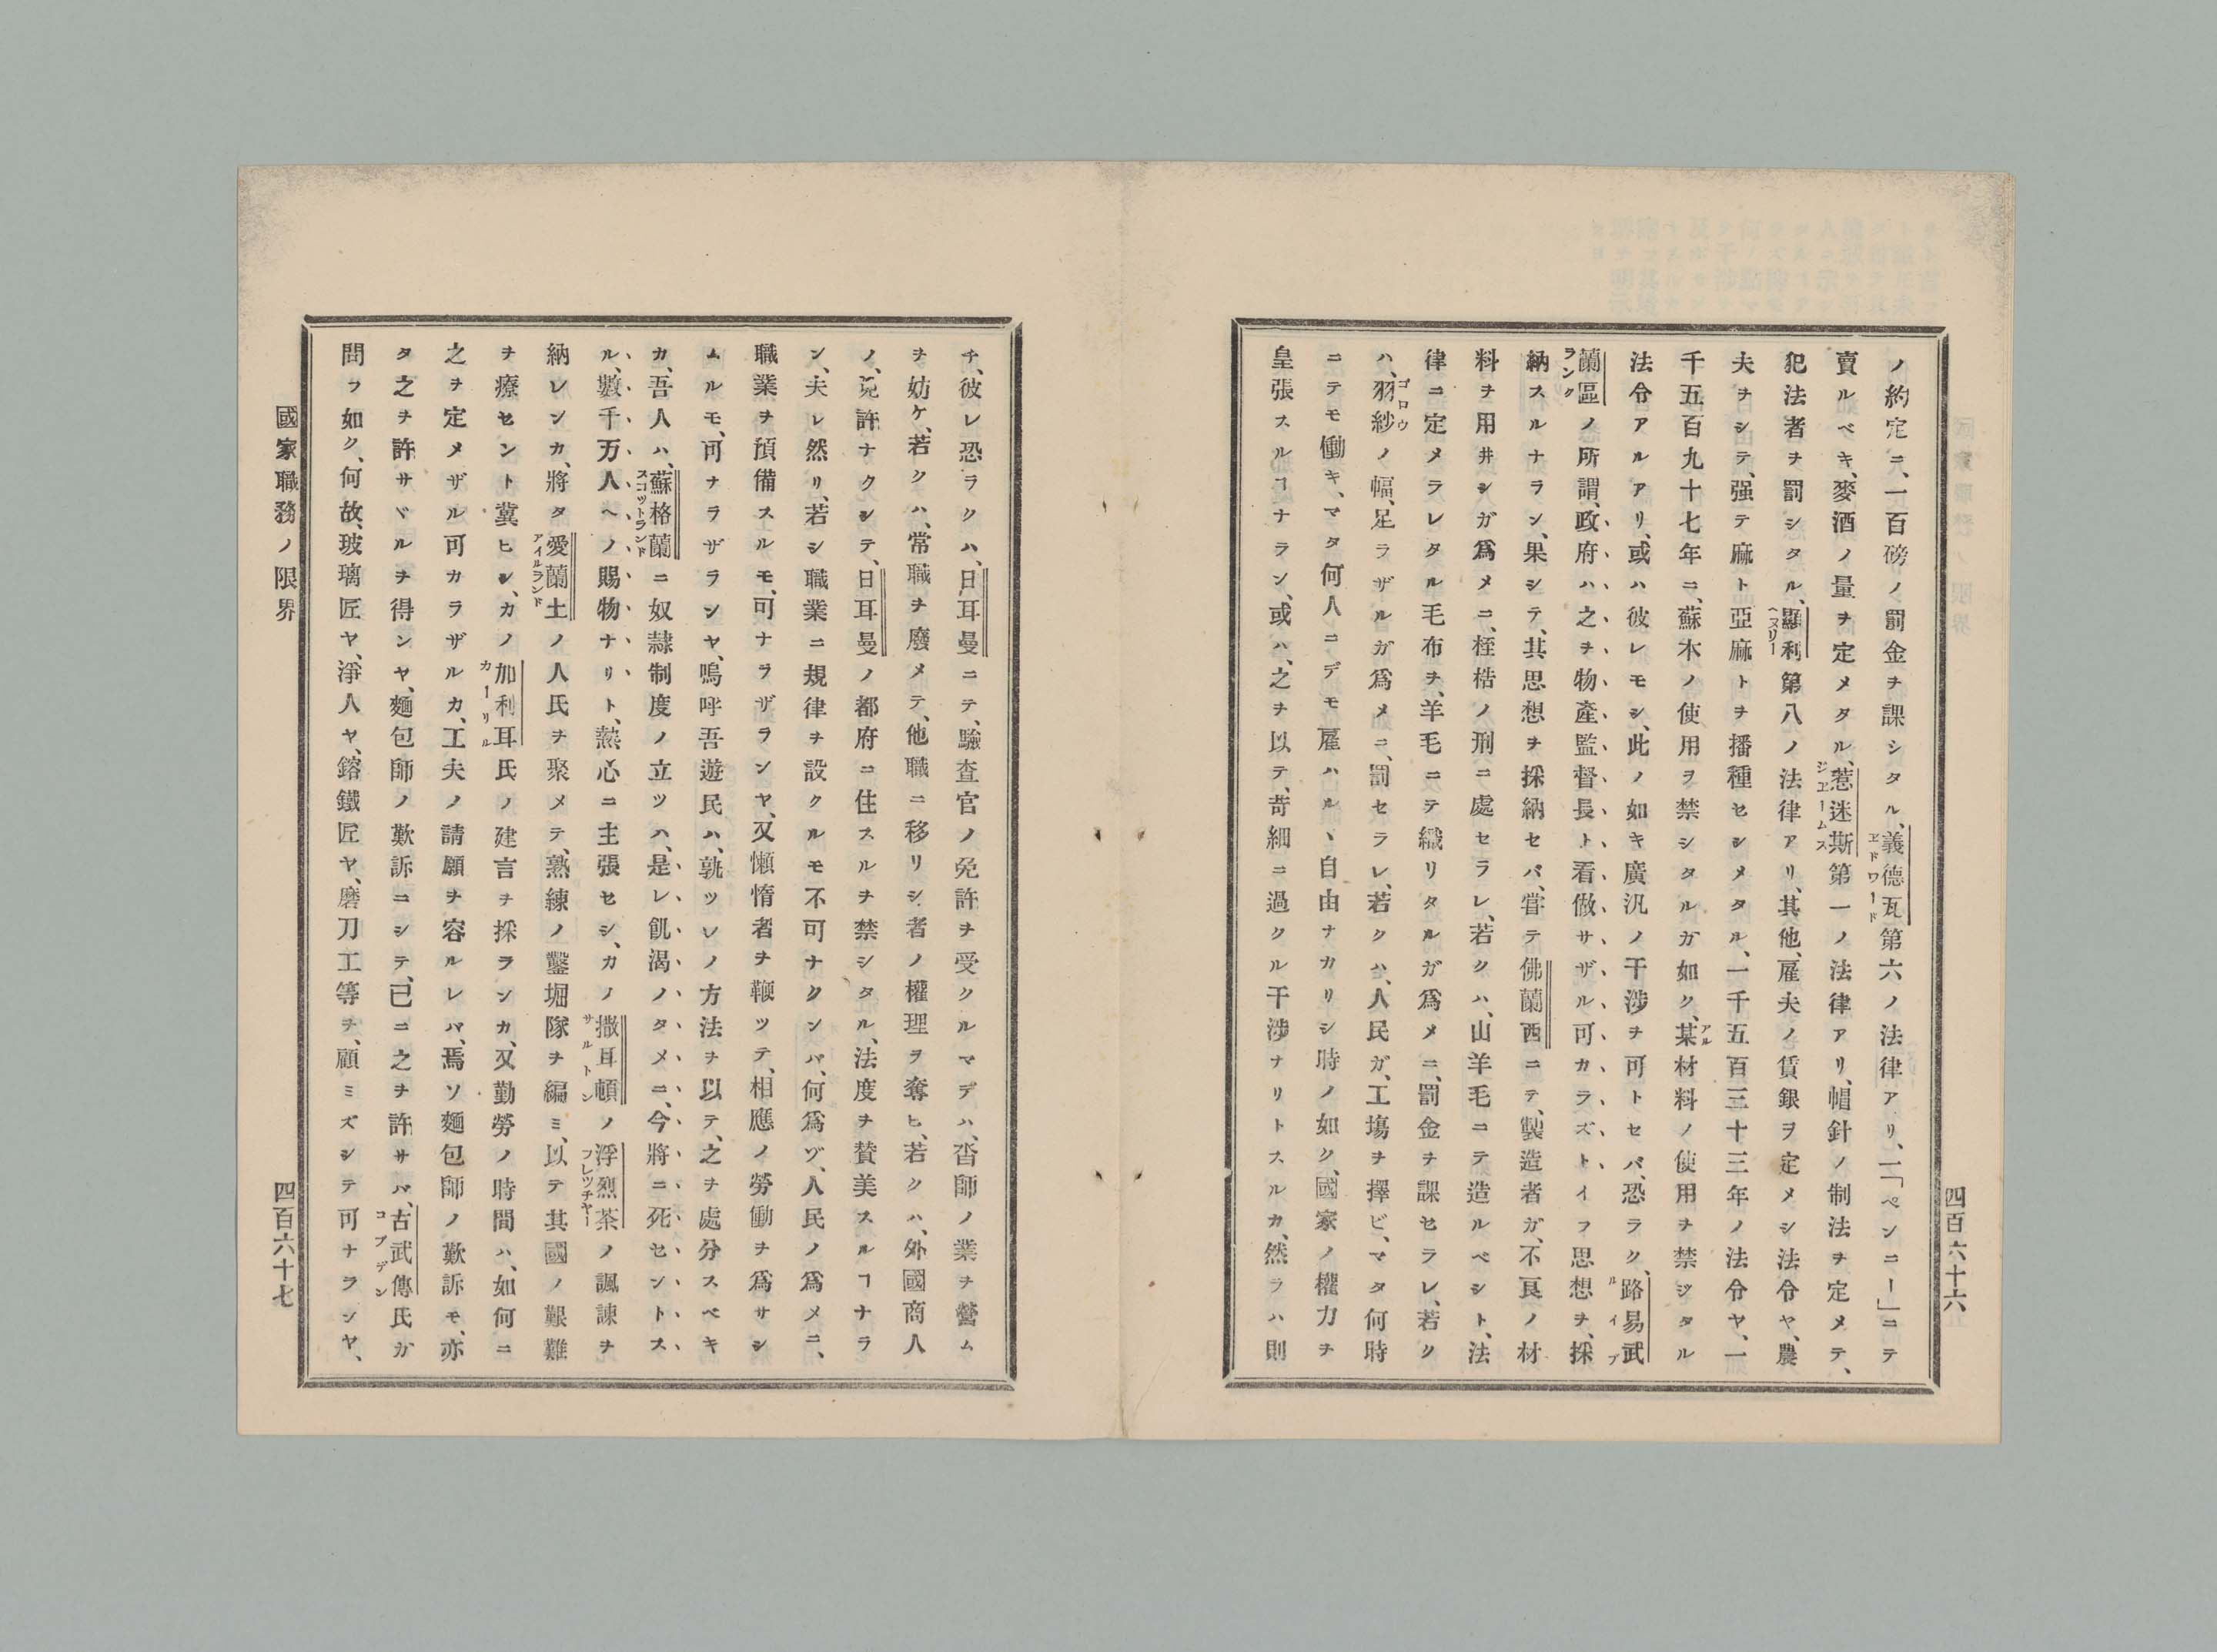 ノ約定ニ、一百磅ノ罰金ヲ課シタル、義德瓦第六ノ法律アリ、一「ペンニー」ニテ
賣ルベキ、麥酒ノ量ヲ定メタル、惹迷斯第一ノ法律アリ、帽針ノ制法ヲ定メテ、
犯法者ヲ罰シタル、顯利第八ノ法律アリ、其他、雇夫ノ賃銀ヲ定メシ法令ヤ、農
夫ヲシテ、强テ麻ト亞麻トヲ播種セシメタル、一千五百三十三年ノ法令ヤ、一
千五百九十七年ニ、蘇木ノ使用ヲ禁シタルガ如ク、某材料ノ使用ヲ禁ジタル
法令アルアリ、或ハ彼レモシ、此ノ如キ廣汎ノ干涉ヲ可トセバ、恐ラク、路易武
蘭區ノ所謂、政府ハ之ヲ物產監督長ト看做サザル可カラズトイフ思想ヲ、採
納スルナラン、果シテ、其思想ヲ採納セバ、嘗テ佛蘭西ニテ、製造者ガ、不良ノ材
料ヲ用井シガ爲メニ、桎梏ノ刑ニ處セラレ、若クハ、山羊毛ニテ造ルベシト、法
律ニ定メラレタル毛布ヲ、羊毛ニテ織リタルガ爲メニ、罰金ヲ課セラレ、若ク
ハ、羽紗ノ幅、足ラザルガ爲メニ、罰セラレ、若クハ、人民ガ、工塲ヲ擇ビ、マタ何時
ニテモ働キ、マタ何人ニデモ雇ハルヽ自由ナカリシ時ノ如ク、國家ノ權力ヲ
皇張スルヿナラン、或ハ、之ヲ以テ、苛細ニ過クル干涉ナリトスルカ、然ラハ則
四百六十六
チ、彼レ恐ラクハ、日耳曼ニテ、驗査官ノ免許ヲ受クルマデハ、沓師ノ業ヲ營ム
ヲ妨ケ、若クハ、常職ヲ廢メテ、他職ニ移リシ者ノ權理ヲ奪ヒ、若クハ、外國商人
ノ、免許ナクシテ、日耳曼ノ都府ニ住スルヲ禁シタル、法度ヲ賛美スルヿナラ
ン、夫レ然リ、若シ職業ニ規律ヲ設クルモ不可ナクンバ、何爲ゾ、人民ノ爲メニ、
職業ヲ預備スルモ、可ナラザランヤ、又懶惰者ヲ鞭ツテ、相應ノ勞働ヲ爲サシ
ムルモ、可ナラザランヤ、嗚呼吾遊民ハ、孰ツレノ方法ヲ以テ、之ヲ處分スベキ
カ、吾人ハ、蘇格蘭ニ奴隷制度ノ立ツハ、是レ飢渴ノタメニ、今將ニ死セントス
ル、數千万人ヘノ賜物ナリト、熱心ニ主張セシ、カノ撒耳頓ノ浮烈茶ノ諷諫ヲ
納レンカ、將タ愛蘭土ノ人民ヲ聚メテ、熟練ノ鑿堀隊ヲ編ミ、以テ其國ノ艱難
ヲ療セント冀ヒシ、カノ加利耳氏ノ建言ヲ採ランカ、又勤勞ノ時間ハ、如何ニ
之ヲ定メザル可カラザルカ、工夫ノ請願ヲ容ルレバ、焉ソ麵包師ノ歎訴モ、亦
タ之ヲ許サヾルヲ得ンヤ、麵包師ノ歎訴ニシテ、已ニ之ヲ許サバ、古武傳氏ガ
問フ如ク、何故、玻璃匠ヤ、淨人ヤ、鎔鐵匠ヤ、磨刀工等ヲ、顧ミズシテ可ナランヤ、
國家職務ノ限界
四百六十七